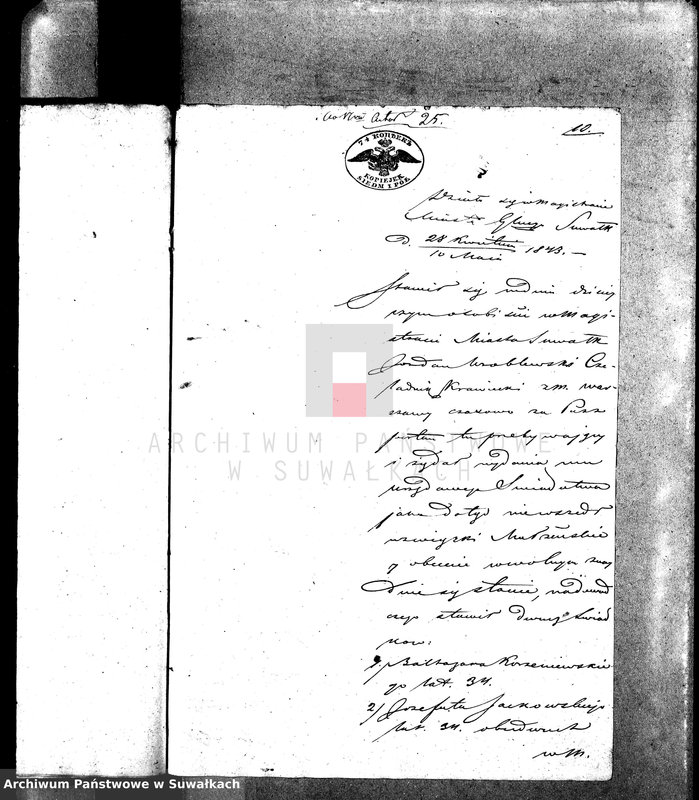 Aktu 25.
10.
7½ КОПѢЕКЪ
KOPIEJEK
SIEDM I PÓŁ
Działo się w Magistracie
Miasta Suwałk
D. 28 Kwietnia 1843. —
10 Maia
Stawił się w dniu dzisiej
szym osobiście w Magi-
stracie Miasta Suwałk
Wroblewski Cze-
ladnik Krawiecki z m. War-
szawy czasowo za Pasz
portem tu przebywający
i żądał wydania mu
urzędowego Świadectwa
jako dotąd niewszedł
w związki Małżeńskie
y obecnie w wolnym znay
duie się stanie, na dowód
czego stawił dwóch Świad
kow:
1) Baltazara Korzeniewskie
go lat. 34.
2) Jozefata Jackowskiego
lat. 34. obudwuch
w M.
ARCHIWUM PAŃSTWOWE
W SUWAŁKACH
Archiwum Państwowe w Suwałkach